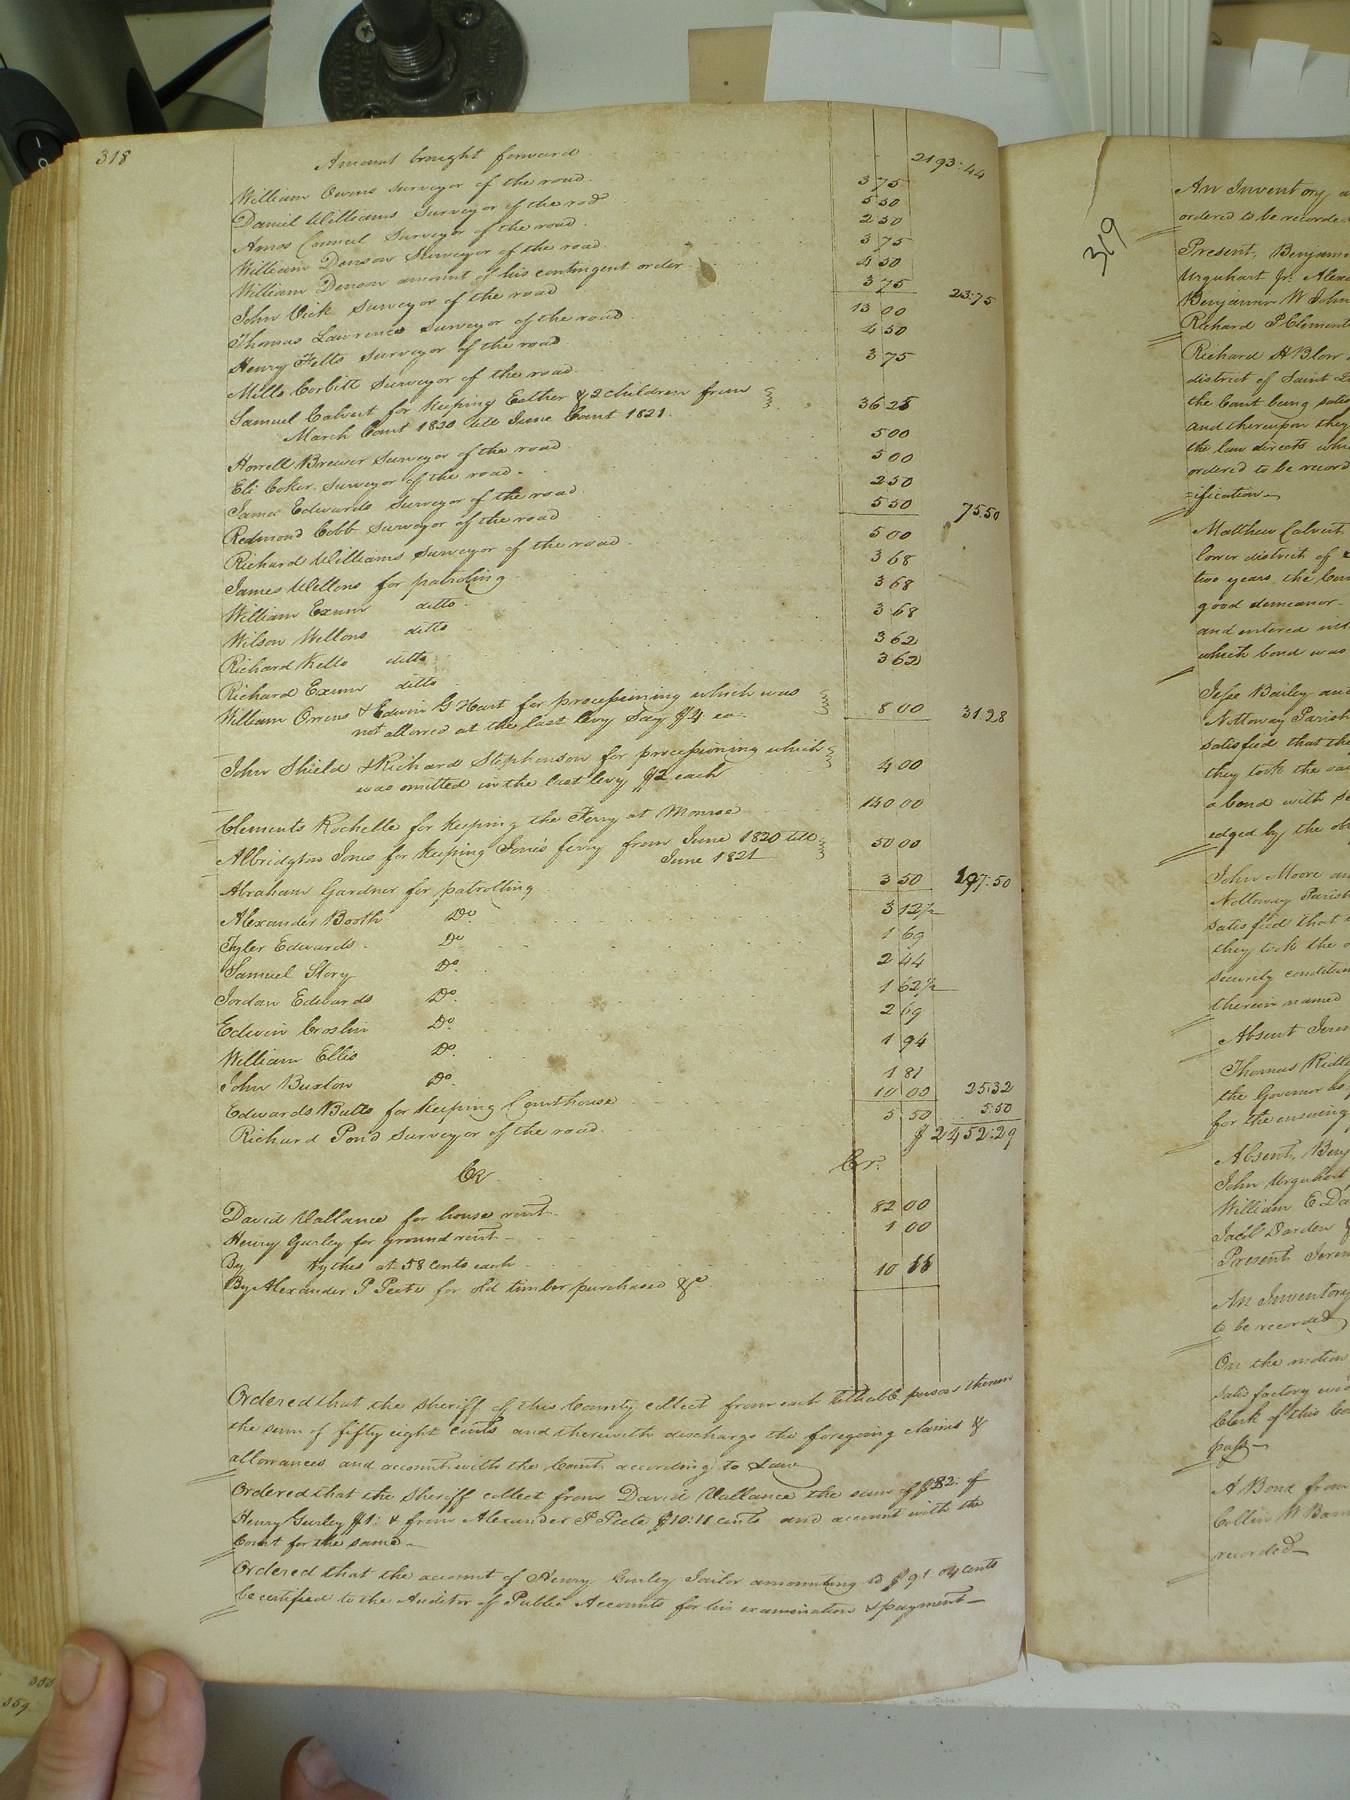 318
Amount brought forward 2193:44
William Owens surveyor of the road 3 75
Daniel Williams Surveyor of the rod 5 50
Amos Council Surveyor of the road 2 50
William Denson Surveyor of the road 3 75
William Denson amount of his contingent order 4 50
John Vick Surveyor of the road 3 75 23:75
Thomas Lawrence Surveyor of the road 13 00
Henry Fells Surveyor of the road 4 50
Mills Corbitt Surveyor of the road 3 75
Samuel Calvert for keeping Esther & 2 children from
March Court 1820 till June Court 1821. 36 25
Horrell Brewer Surveyor of the road 5 00
Eli Coker Surveyor of the road 5 00
James Edwards Surveyor of the road 2 50
Redmond Cobb Surveyor of the road 5 50 75.50
Richard Williams Surveyor of the road 5 00
James Wellons for patroling 3 68
William Exum ditto 3 68
Wilson Wellons ditto 3 68
Richard Kello ditto 3 62
Richard Exum ditto 3 62
William Orrens & Edwin G Hart for processioning which was
not allowed at the last levy Say $4 ea. 8 00 31.28
John Shield & Richard Stephenson for processioning which
was omitted in the last levy $2 each 4 00
Clements Rochelle for keeping the Ferry at Monroe 140 00
Albridgton Jones for keeping Jones ferry from June 1820 till
June 1821 50 00
Abraham Gardner for patrolling 3 50 197:50
Alexander Booth Do 3 12½
Tyler Edwards Do 1 69
Samuel Story Do. 2 44
Jordan Edwards Do. 1 62½
Edwin Croslin Do. 2 69
William Ellis Do. 1 94
John Buxton Do. 1 81
Edwards Butts for keeping Courthouse 10 00 25.32
Richard Pond Surveyor of the road 5 50 5.50
$ 2452:29
Cr Cr.
David Vallance for house rent 82 00
Henry Gurley for ground rent 1 00
By tythes at 58 Cents each
By Alexander P Peete for old timber purchased &c 10 11
Ordered that the Sheriff of this County collect from each tithable person therein
the sum of fifty eight cents and therewith discharge the foregoing claims &
allowances and account with the Court according to Law
Ordered that the Sheriff collect from David Vallance the sum of $82: of
Henry Gurley $1: & from Alexander P Peete $10:11 cents and account with the
Court for the same
Ordered that the account of Henry Gurley Jailor amounting to $91 04 cents
be certified to the Auditor of Public Accounts for his examination & payment
319
An Inventory
ordered to be recorde
Present, Benjamin
Urquhart Jr. Alexa
Benjamin W John
Richard P Clements
Richard H Blow
district of Saint
the Court being satis
and thereupon they
the law directs whi
ordered to be record
=ification
Matthew Calvert
lower district of
two years the Cour
good demeanor
and entered into
which bond was
Jesse Bailey and
Nottoway Parish
satisfied that the
they took the oa
a bond with se
edged by the ob
John Moore an
Nottoway Parish
satisfied that
they took the o
security condition
therein named
Absent Jerem
Thomas Ridle
the Governor as
for the ensuing
Absent, Benj
John Urquhart
William E Da
Jacob Dardon &
Present Jerem
An Inventory
to be recorded
On the motion
satisfactory evi
Clerk of this Co
pass
A Bond from
Collin W Barn
recorded
359